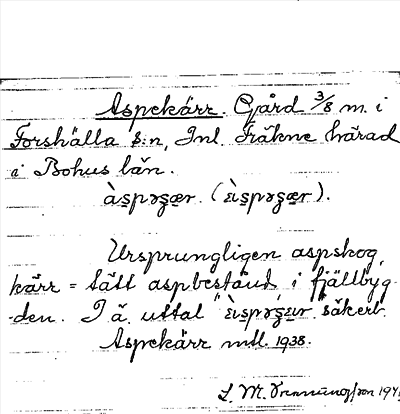 Aspekärr. Gård 3/8 m. i
Forshälla s:n, Inl. Fräkne härad
i Bohus län.
àspəʒær. (ὲispəʒær).
Ursprungligen aspskog,
kärr = tätt aspbestånd i fjällbyg-
-den. I ä. uttal "ὲispəʒær" säkerl.
Aspekärr mtl. 1938.